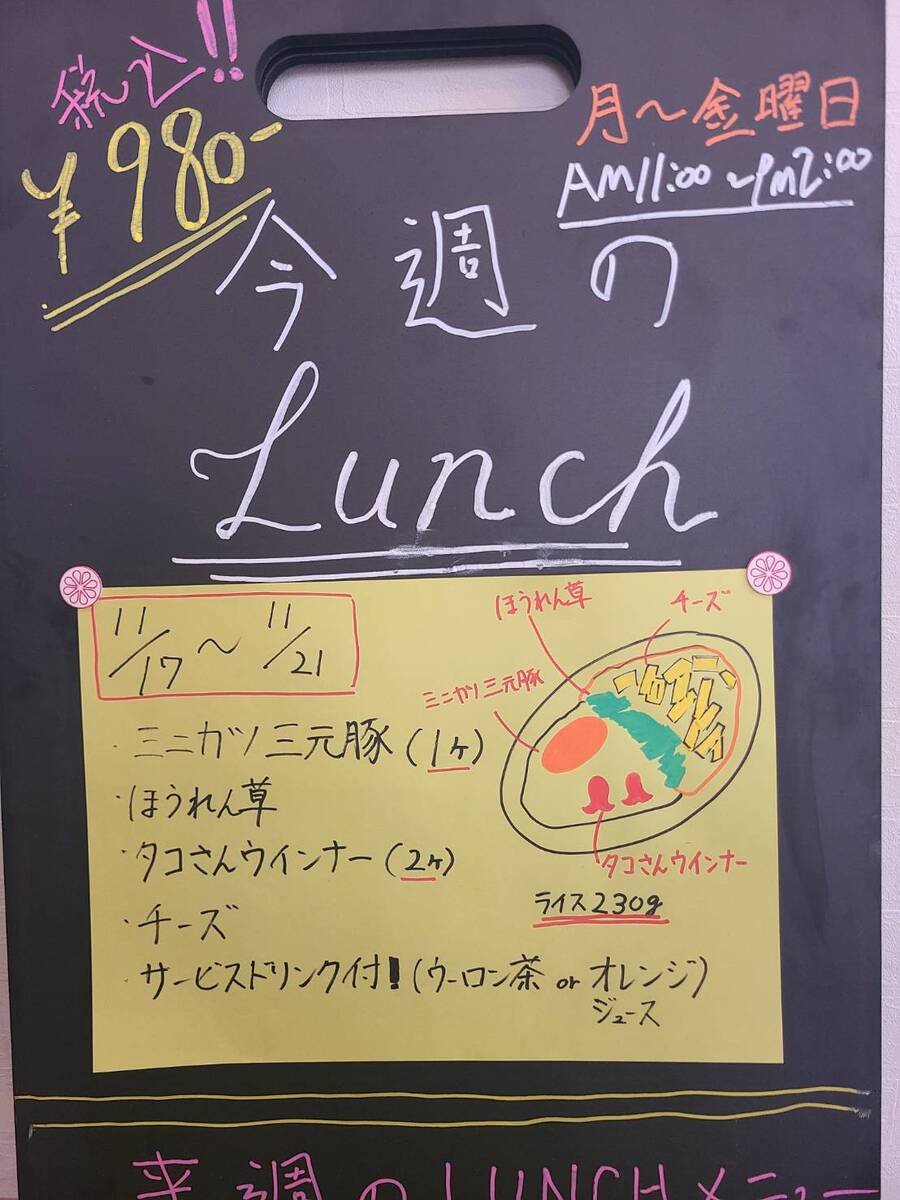 税込!!
¥980-
月～金曜日
AM11:00～PM2:00
今週の
Lunch
11/17～11/21
・ミニカツ三元豚(1ヶ)
・ほうれん草
・タコさんウインナー(2ヶ)
・チーズ
・サービスドリンク付!(ウーロン茶 or オレンジ)
ジュース
ほうれん草
チーズ
ミニカツ三元豚
タコさんウインナー
ライス230g
来週のLUNCHメニュー